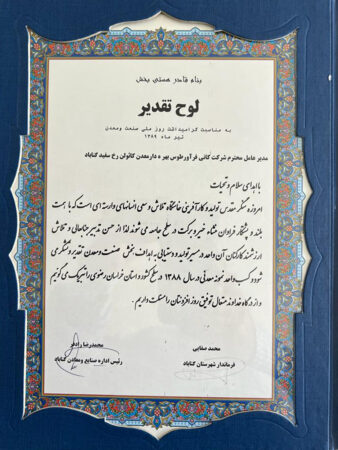 بنام قادر هستی بخش
لوح تقدیر
به مناسبت گرامیداشت روز ملی صنعت ومعدن
تیر ماه ۱۳۸۹
مدیر عامل محترم شرکت کانی فرآورطوس بهره دارمعدن کائولن رخ سفید گناباد
با اهدای سلام و تحیات
امروزه سنگر مقدس تولید و کارآفرینی جایگاه تلاش و سعی انسانهای وارسته ای است که با همت
بلند و پشتکار فراوان منشاء خیر و برکت در سطح جامعه می شوند لذا از حسن تدبیر جنابعالی و تلاش
ارزشمند کارکنان آن واحد در مسیر تولید و دستیابی به اهداف بخش صنعت و معدن تقدیر و تشکر می
شود و کسب واحد نمونه معدنی در سال ۱۳۸۸ در سطح کشور و استان خراسان رضوی را تبریک می گوییم
و از درگاه خداوند متعال توفیق روز افزونتان را مسئلت داریم.
محمدرضا
رئیس اداره صنایع ومعادن گناباد
محمد صفایی
فرماندار شهرستان گناباد